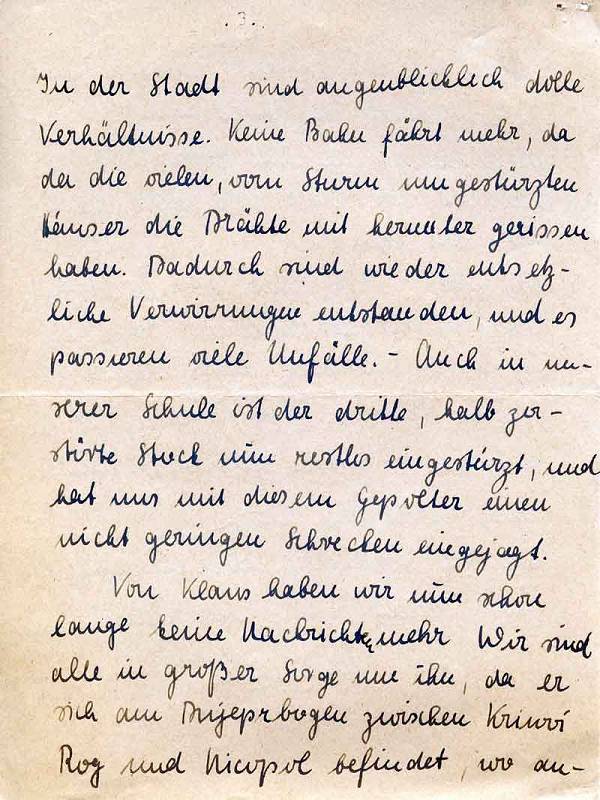 3.
In der Stadt sind augenblicklich dolle
Verhältnisse. Keine Bahn fährt mehr, da
da die vielen, vom Sturm umgestürzten
Häuser die Drähte mit herunter gerissen
haben. Dadurch sind wieder entsetz-
liche Verwirrungen entstanden, und es
passieren viele Unfälle. - Auch in un-
serer Schule ist der dritte, halb zer-
störte Stock nun restlos eingestürzt, und
hat uns mit diesem Gepolter einen
nicht geringen Schrecken eingejagt.
Von Klaus haben wir nun schon
lange keine Nachricht, mehr Wir sind
alle in großer Sorge um ihn, da er
sich am Dnjeprbogen zwischen Kriwoi
Rog und Nicopol befindet, wo an-